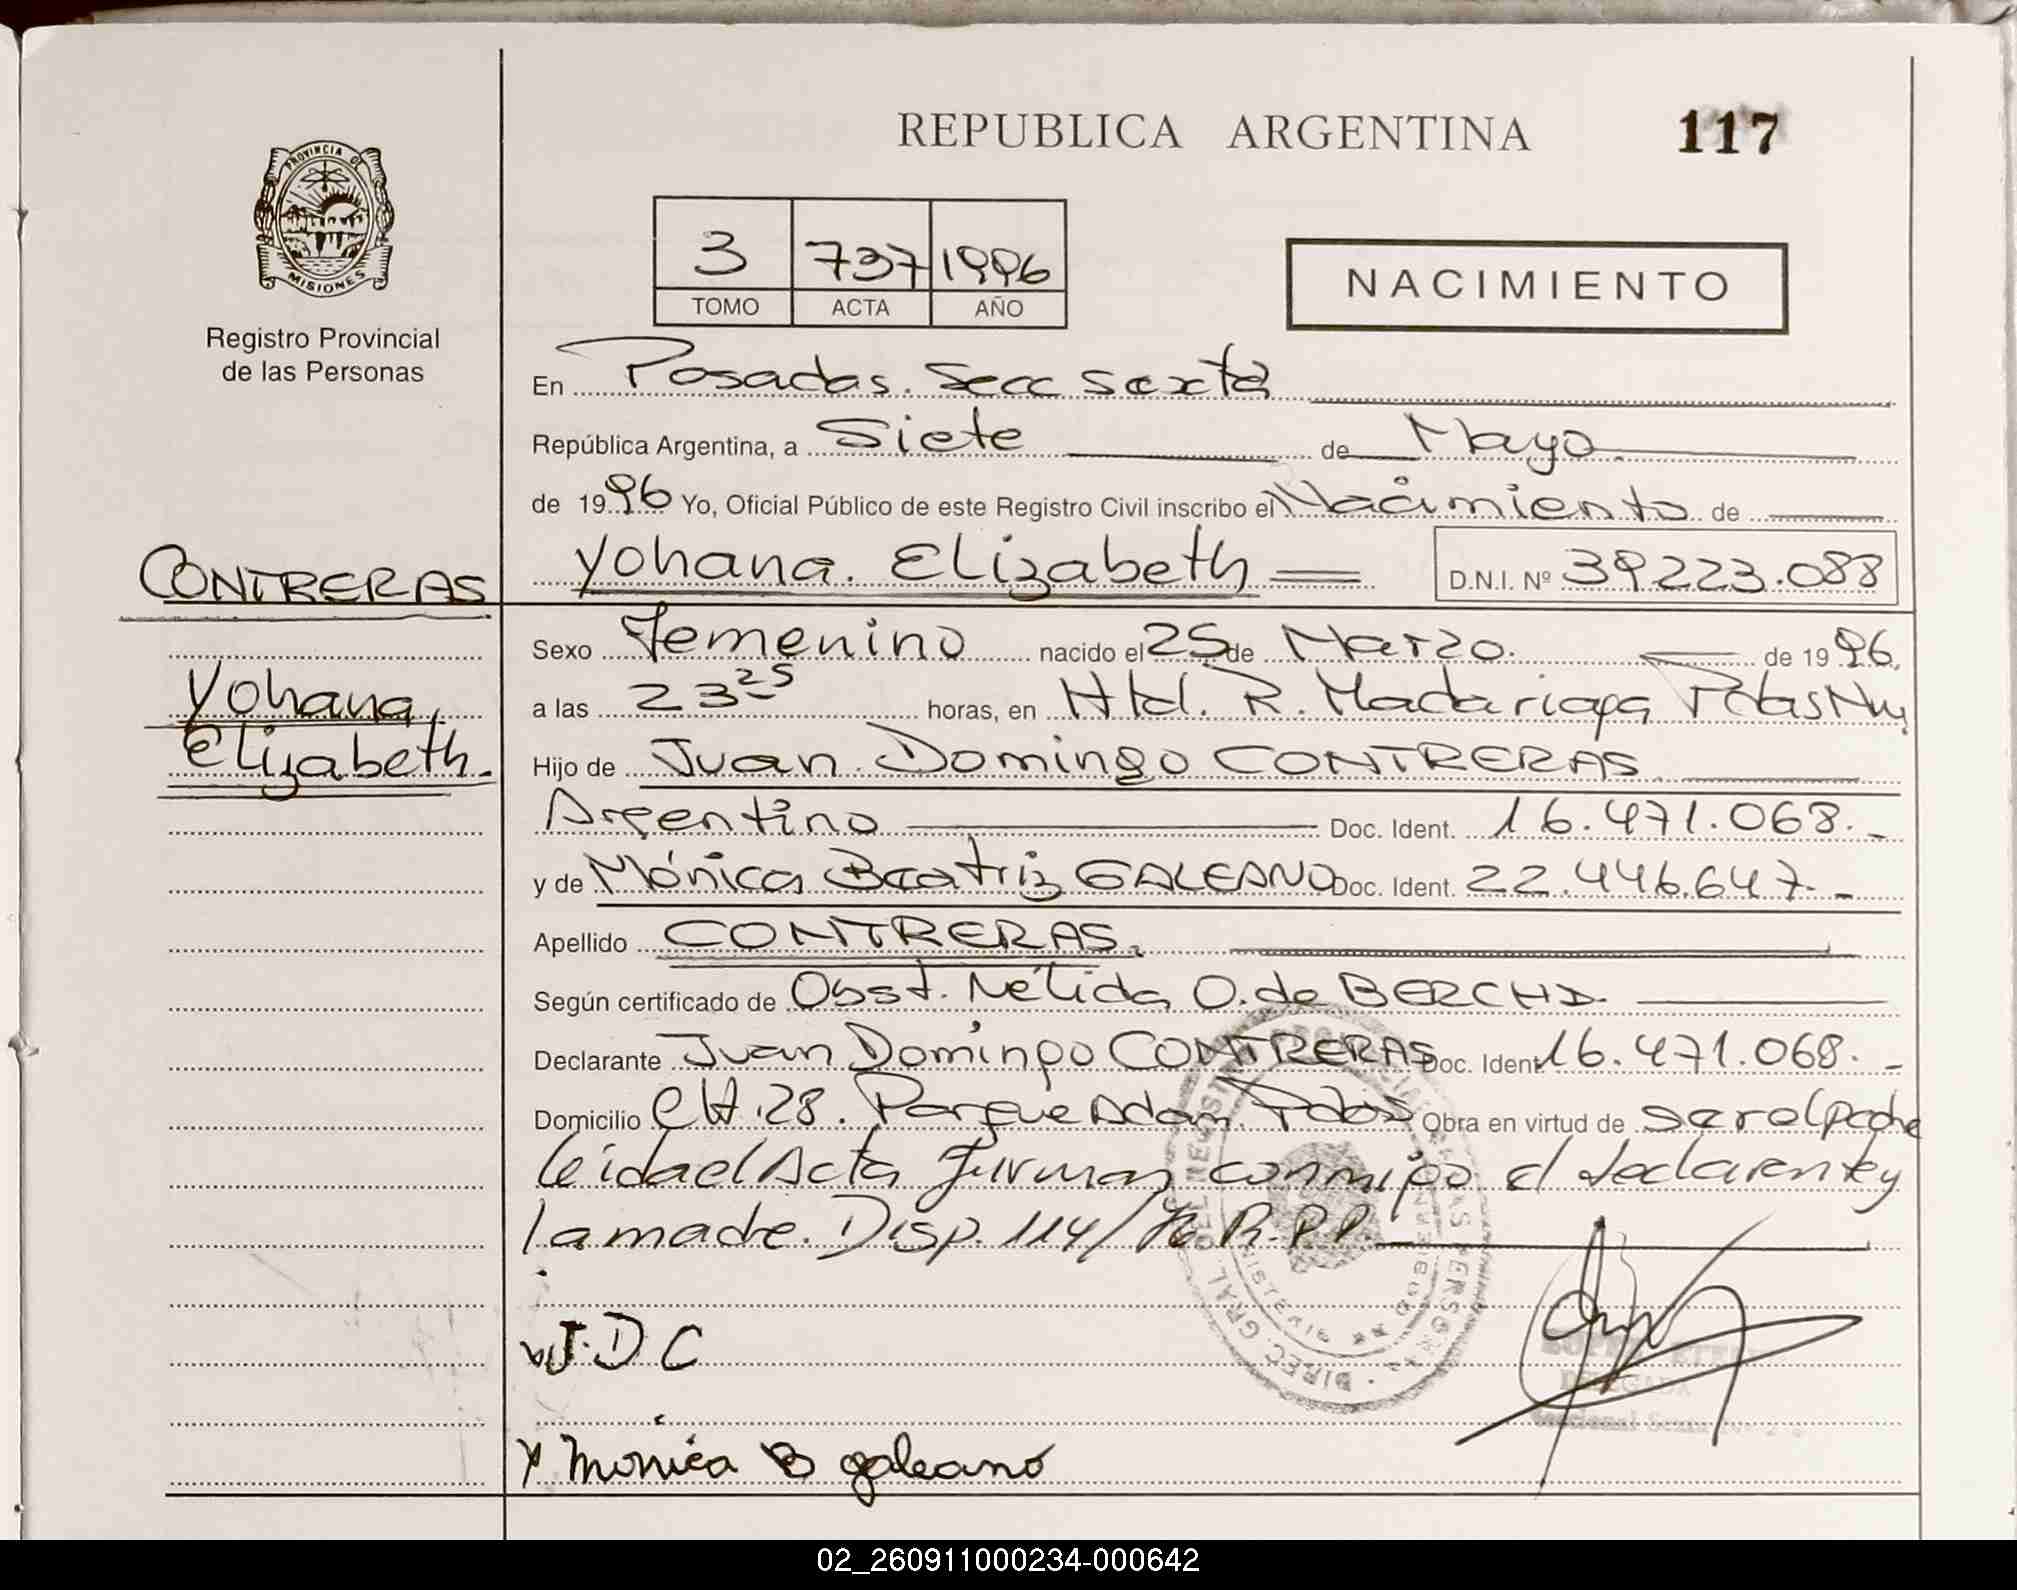 REPUBLICA ARGENTINA
117
PROVINCIA DE
MISIONES
Registro Provincial
de las Personas
3 737 1996
TOMO ACTA AÑO
NACIMIENTO
En Posadas. Secc sexta
República Argentina, a Siete de Mayo
de 1996 Yo, Oficial Público de este Registro Civil inscribo el Nacimiento de
CONTRERAS
Yohana Elizabeth D.N.I. Nº 39.223.088
Sexo Femenino nacido el 25 de Marzo. de 1996.
Yohana
a las 23 25 horas, en Htal. R. Madariaga
Elizabeth.
Hijo de Juan Domingo CONTRERAS
Argentino Doc. Ident. 16.471.068.-
y de Mónica Beatriz GALEANO Doc. Ident. 22.446.647.-
Apellido CONTRERAS.
Según certificado de Obst. Nélida O. de
Declarante Juan Domingo CONTRERAS Doc. Ident 16.471.068.-
Domicilio CH.28. Parque Adam. Pdas Obra en virtud de ser el padre
leida el Acta firman conmigo el declarante y
la madre. Disp. 114/ R.P.P.
J.D.C
Monica B galeano
DELEGADA
Seccional Sexta
02_260911000234-000642